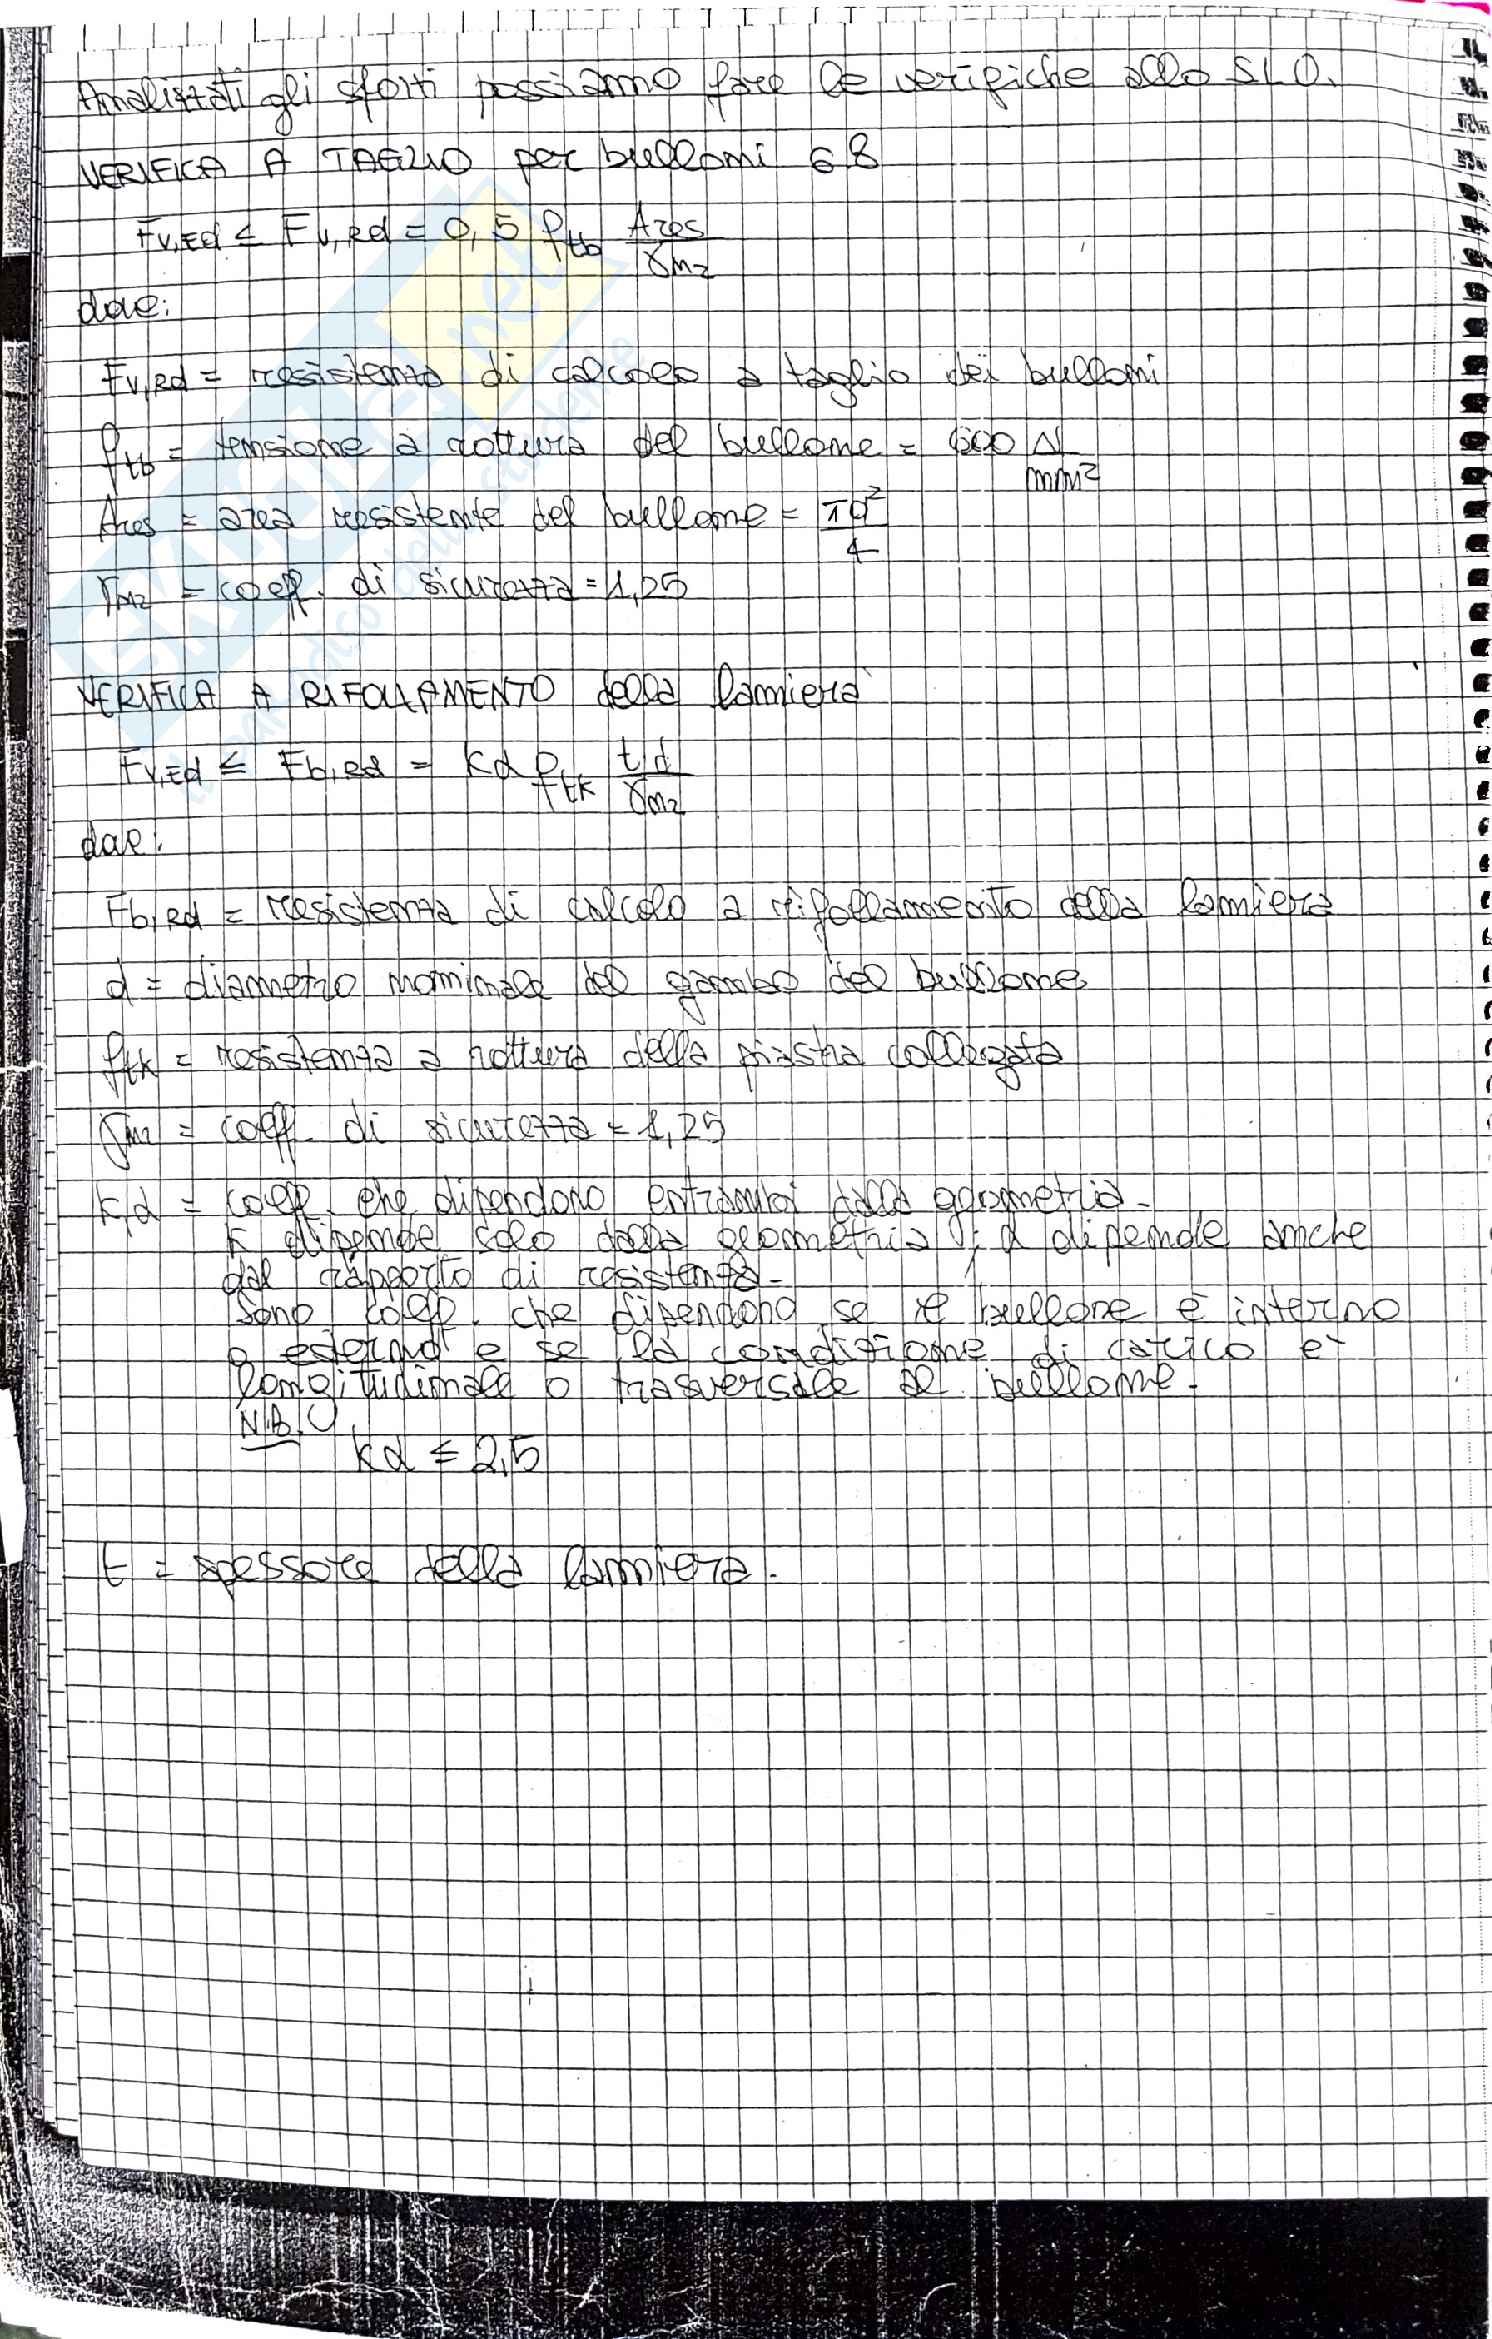 Analizzati gli sforzi possiamo fare le verifiche allo S.L.U.
VERIFICA A TAGLIO per bulloni 6.8
Fv,Ed ≤ Fv,Rd = 0,5 ftb Ares/γm2
dove:
Fv,Rd = resistenza di calcolo a taglio dei bulloni
ftb = tensione a rottura del bullone = 600 N/mm²
Ares = area resistente del bullone = πd²/4
γm2 = coeff. di sicurezza = 1,25
VERIFICA A RIFOLLAMENTO della lamiera
Fv,Ed ≤ Fb,Rd = kα ftk t d/γm2
dove:
Fb,Rd = resistenza di calcolo a rifollamento della lamiera
d = diametro nominale del gambo del bullone
ftk = resistenza a rottura della piastra collegata
γm2 = coeff. di sicurezza = 1,25
k,α = coeff. che dipendono entrambi dalla geometria.
k dipende solo dalla geometria; α dipende anche
dal rapporto di resistenza.
Sono coeff. che dipendono se il bullone è interno
o esterno e se la condizione di carico è
longitudinale o trasversale al bullone.
N.B.
kα ≤ 2,5
t = spessore della lamiera.
SKUOLA.net